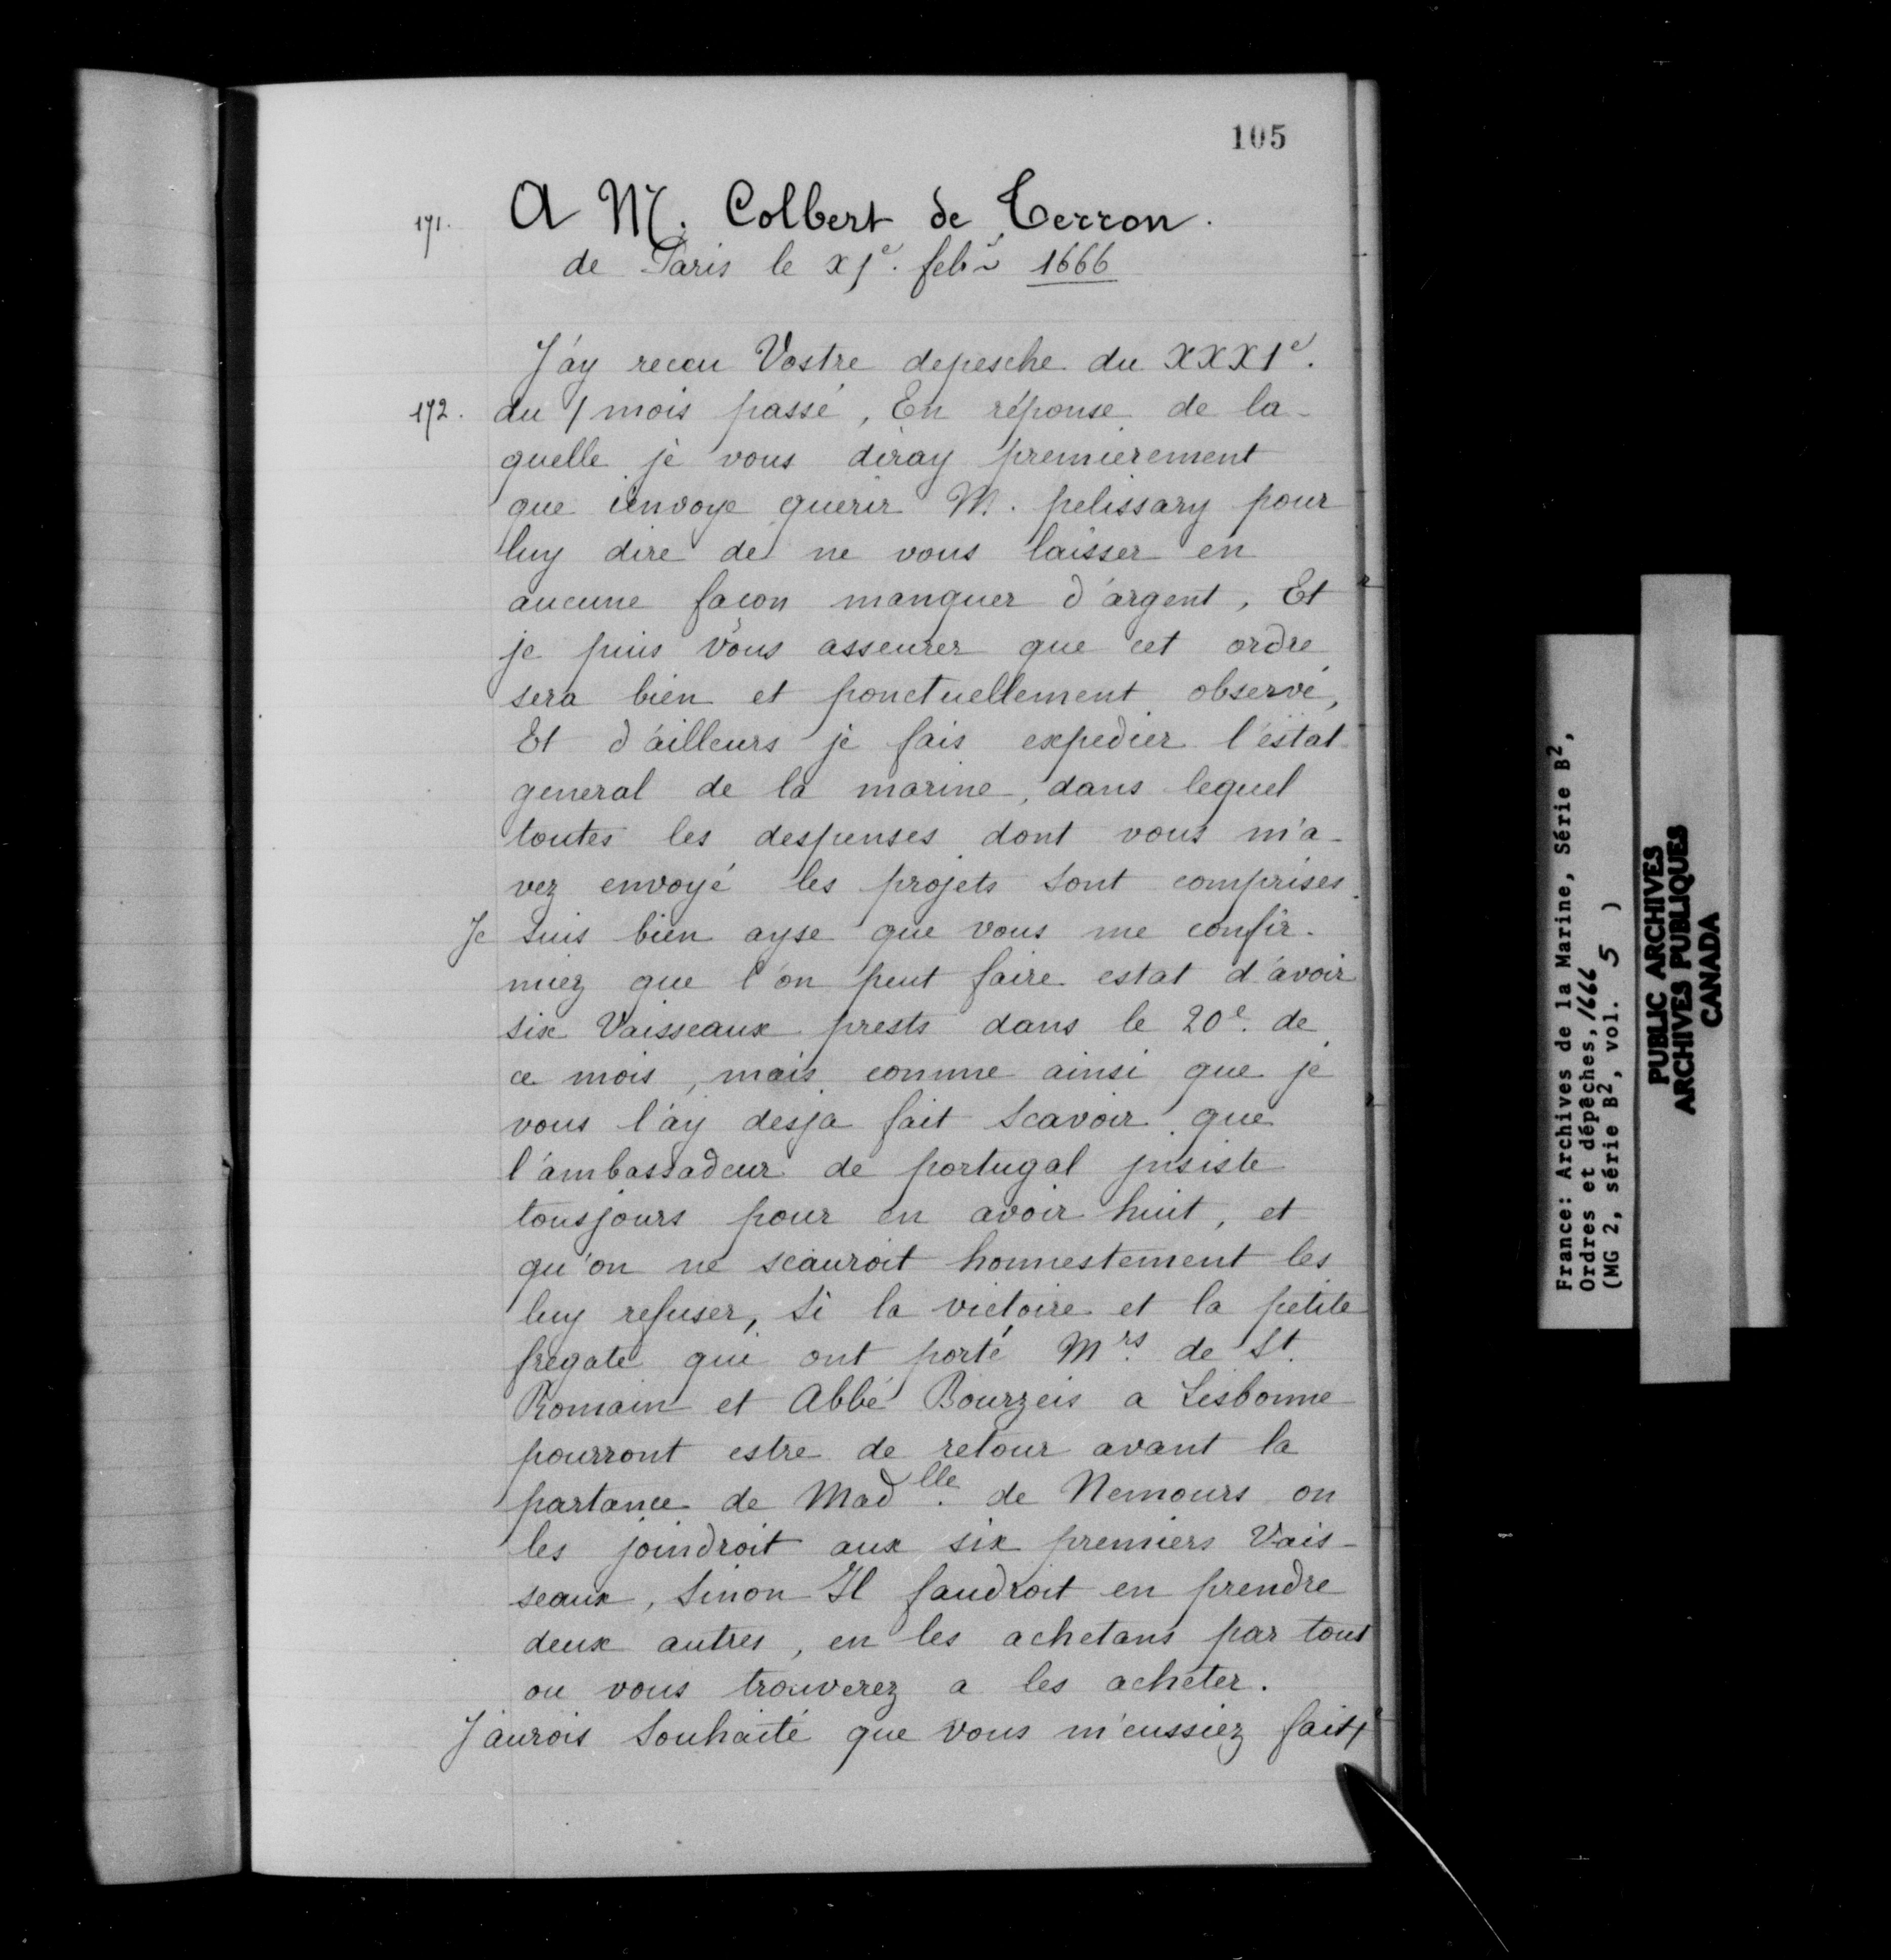 105
171. A M. Colbert de Terron.
de Paris le xje. febr 1666
J'ay receu Vostre depesche du XXX1e.
172. du / mois passé, En réponse de la-
quelle je vous diray premierement
que ienvoye querir M. pelissary pour
luy dire de ne vous laisser en
aucune façon manquer d'argent, Et
je puis vous asseurer que cet ordre
sera bien et ponctuellement observé,
Et d'ailleurs je fais expedier l'estat
general de la marine, dans lequel
toutes les despenses dont vous m'a-
vez envoyé les projets sont comprises.
Je suis bien ayse que vous me confir-
miez que l'on peut faire estat d'avoir
six Vaisseaux prests dans le 20e. de
ce mois, mais comme ainsi que je
vous l'ay desja fait scavoir que
l'ambassadeur de portugal jnsiste
tousjours pour en avoir huit, et
qu'on ne scauroit honnestement les
luy refuser, si la victoire et la petite
fregate qui ont porté Mrs. de St.
Romain et Abbé Bourzeis a Lisbonne
pourront estre de retour avant la
partance de Madlle. de Nemours on
les joindroit aux six premiers Vais-
seaux, sinon Il faudroit en prendre
deux autres, en les achetans par tout
ou vous trouverez a les acheter.
J'aurois souhaité que vous m'eussiez fait
France: Archives de la Marine, Série B2,
Ordres et dépêches, 1666
(MG 2, série B2, vol. 5 )
PUBLIC ARCHIVES
ARCHIVES PUBLIQUES
CANADA